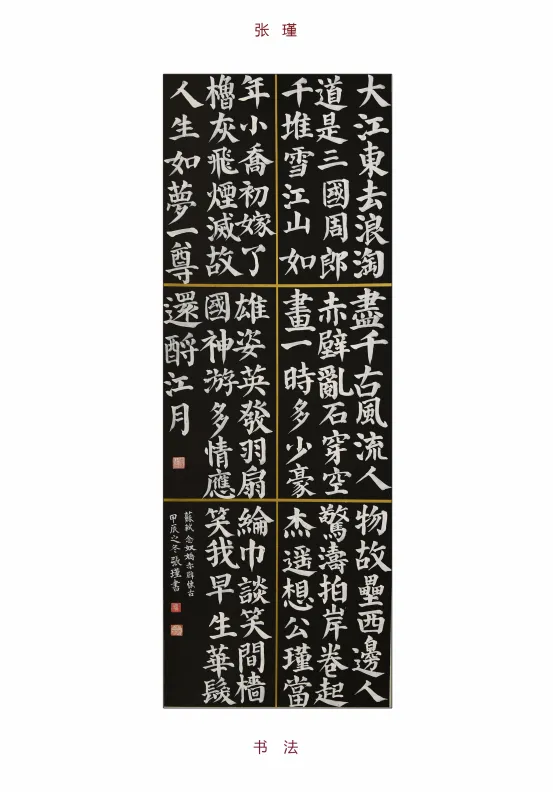 张 瑾
大江東去浪淘盡千古風流人物故壘西邊人
道是三國周郎赤壁亂石穿空驚濤拍岸卷起
千堆雪江山如畫一時多少豪杰遥想公瑾當
年小喬初嫁了雄姿英發羽扇綸巾談笑間檣
櫓灰飛煙滅故國神游多情應笑我早生華髮
人生如夢一尊還酹江月
蘇軾 念奴嬌赤壁懷古
甲辰之冬張瑾書
书 法